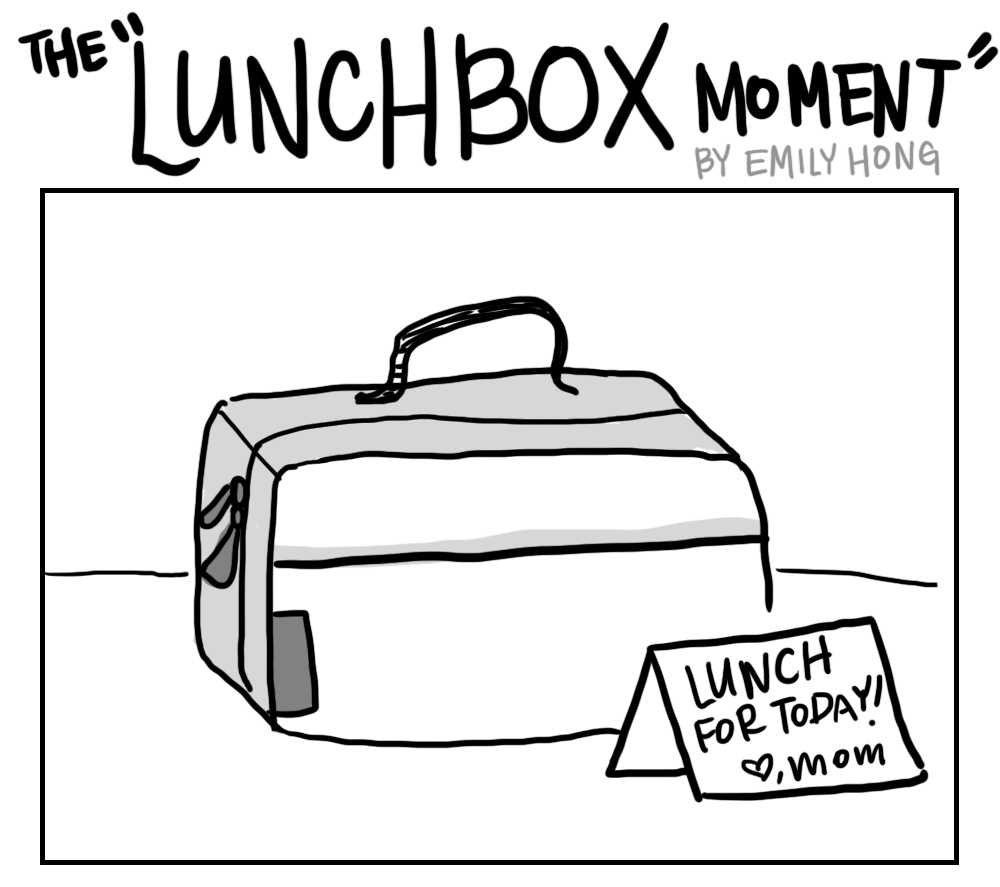 THE "LUNCHBOX MOMENT"
BY EMILY HONG
LUNCH
FOR TODAY!
♡, mom